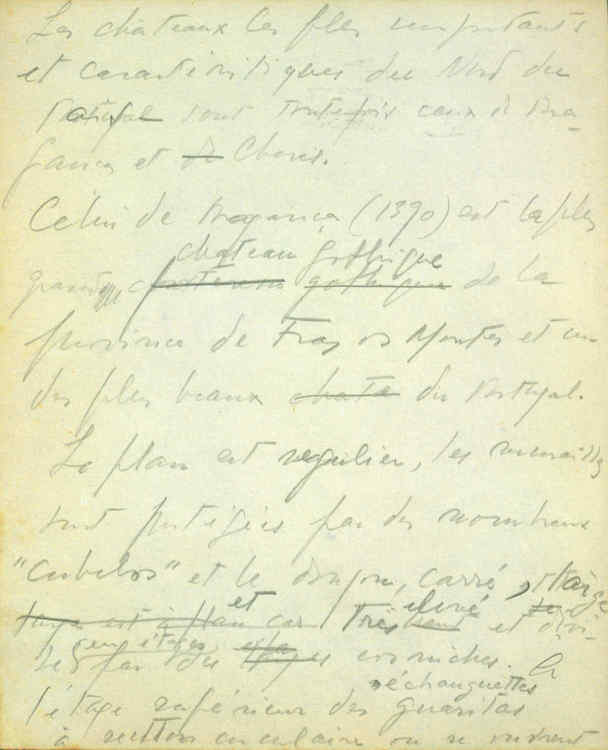 Les châteaux les plus importants
et caractéristiques du Nord du
Portugal sont toutefois ceux de Bra-
gança et de Chaves.
Celui de Bragança (1390) est le plus
château gothique
grand chateau gothique de la
province de Tras os Montes et un
des plus beaux chata du Portugal.
Le plan est régulier, les murailles
sont protégées par des nombreux
"Cubelos" et le donjon, carré,
et élevé
est à plan car très et divi-
en étages
sé par des corniches. A
échauguettes
l'étage supérieur des guaritas
à section circulaire ou se montrent